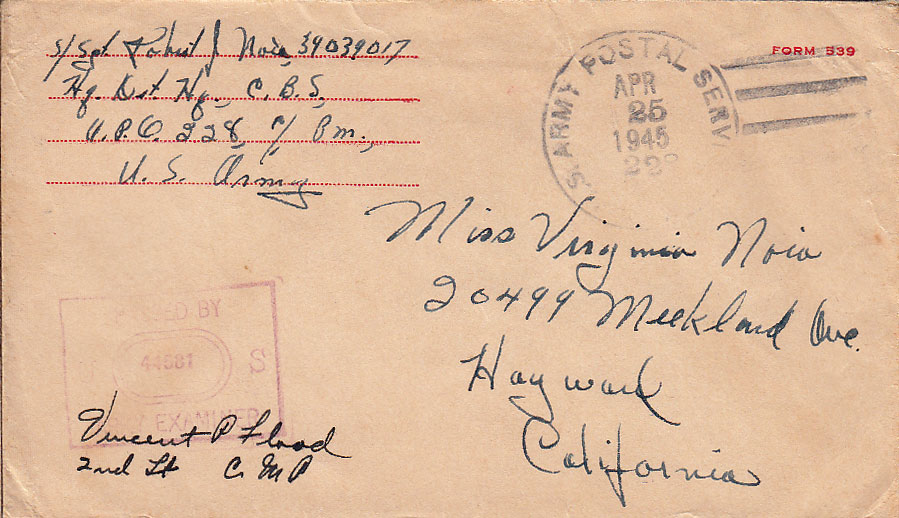 S/Sgt Robert J Noia, 39039017
Hq. Dist Hq., C.B.S,
A.P.O. 228, c/o Pm.,
U. S. Army
FORM 539
S. ARMY POSTAL SERV
APR
25
1945
Miss Virginia Noia
20499 Meekland Ave.
Hayward
California
BY
44681
S
EXAMINER
Vincent P Flood
2nd Lt C M P